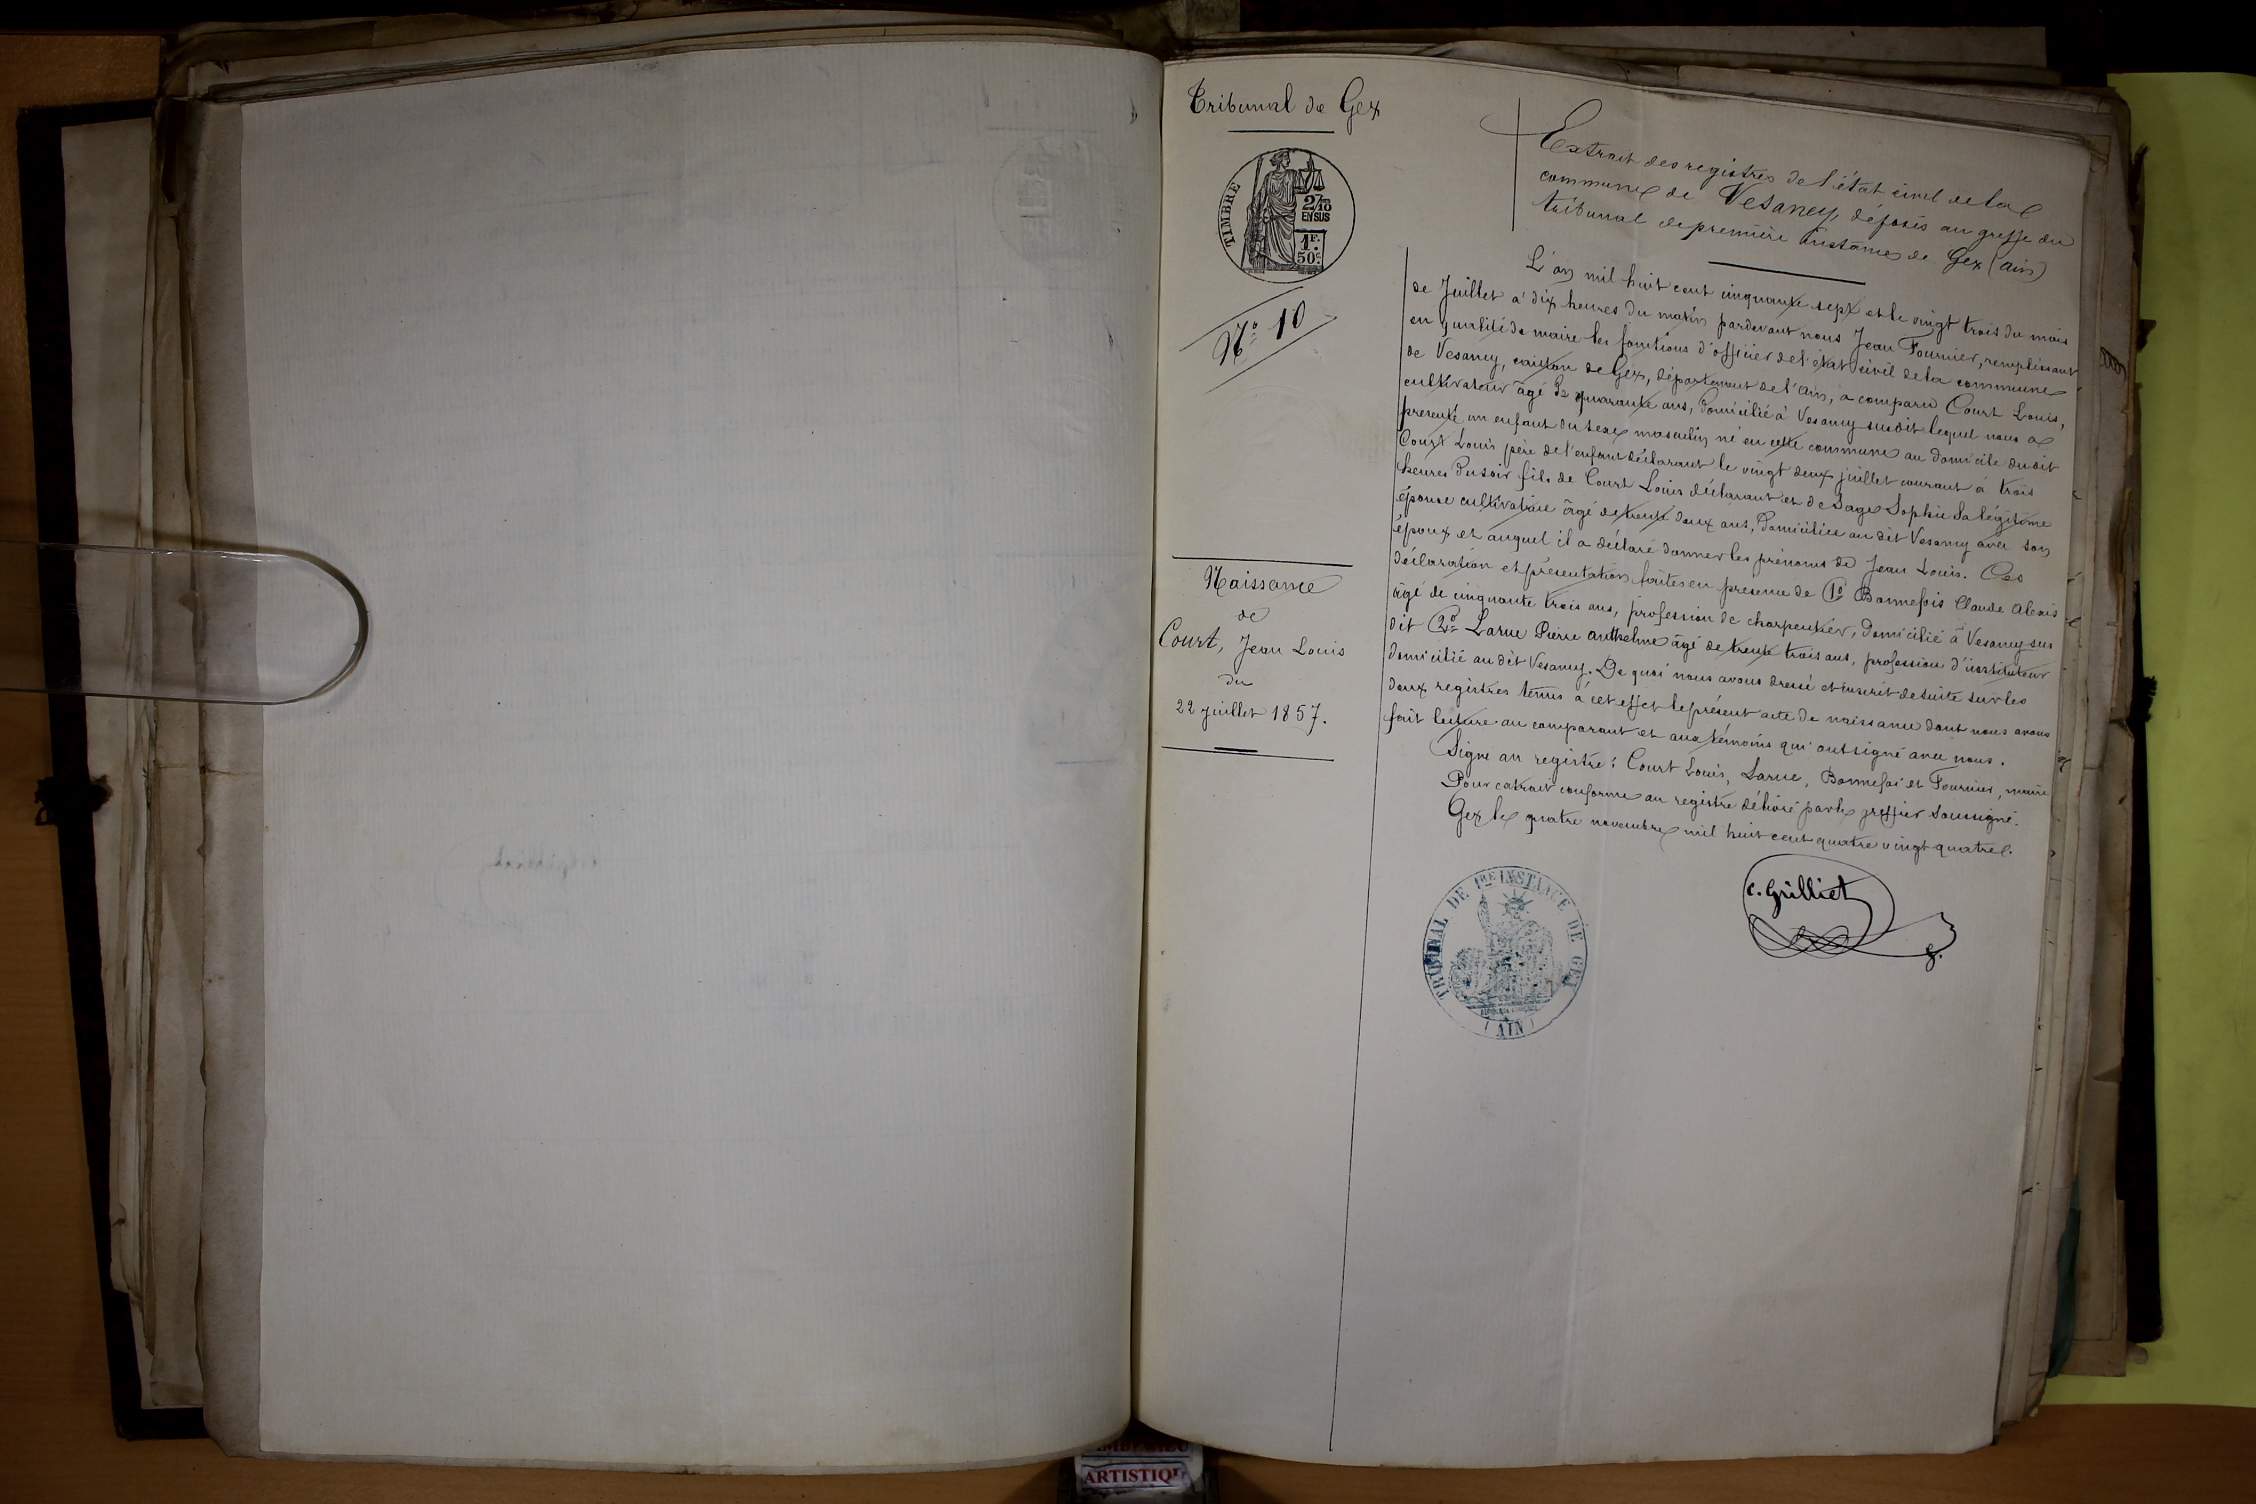 Tribunal de Gex
TIMBRE
2/10 EN SUS
1F.
50c.
N° 10
Naissance
de
Court, Jean Louis
du
22 juillet 1857.
Extrait des registres de l'état civil de la
commune de Vesancy, déposés au greffe du
tribunal de première instance de Gex (Ain)
L'an mil huit cent cinquante sept et le vingt trois du mois
de Juillet à dix heures du matin pardevant nous Jean Fournier, remplissant
en qualité de maire les fonctions d'officier de l'état civil de la commune
de Vesancy, canton de Gex, département de l'Ain, a comparu Court Louis,
cultivateur âgé de quarante ans, domicilié à Vesancy susdit lequel nous a
presenté un enfant du sexe masculin né en cette commune au domicile dudit
Court Louis père de l'enfant déclarant le vingt deux juillet courant à trois
heures du soir fils de Court Louis déclarant et de Sage Sophie sa légitime
épouse cultivatrice âgé de trente deux ans, domiciliée au dit Vesancy avec son
époux et auquel il a déclaré donner les prénoms de Jean Louis. Ces
déclaration et présentation faites en présence de 1° Bonnefois Claude Alexis
âgé de cinquante trois ans, profession de charpentier, domicilié à Vesancy sus
dit 2° Larue Pierre Anthelme âgé de trente trois ans, profession d'instituteur
domicilié au dit Vesancy. De quoi nous avons dressé et inscrit de suite sur les
deux registres tenus à cet effet le présent acte de naissance dont nous avons
fait lecture au comparant et aux témoins qui ont signé avec nous.
Signé au registre: Court Louis, Larue, Bonnefoi et Fournier, maire
Pour extrait conforme au registre délivré par le greffier soussigné.
Gex le quatre novembre mil huit cent quatre vingt quatre.
C. Grilliet
TRIBUNAL DE 1RE INSTANCE DE GEX
(AIN)
ARTISTIQU